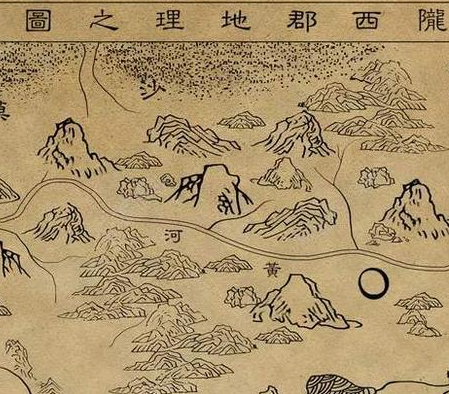 隴西郡地理之圖
沙
黃河